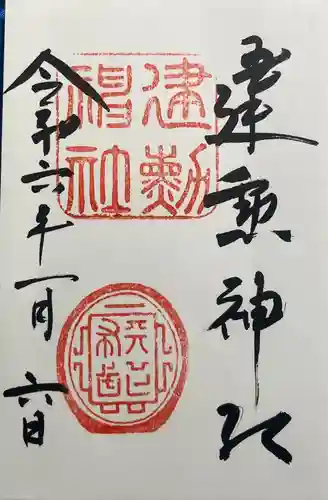 建勲神社
令和六年一月六日
建勲
神社